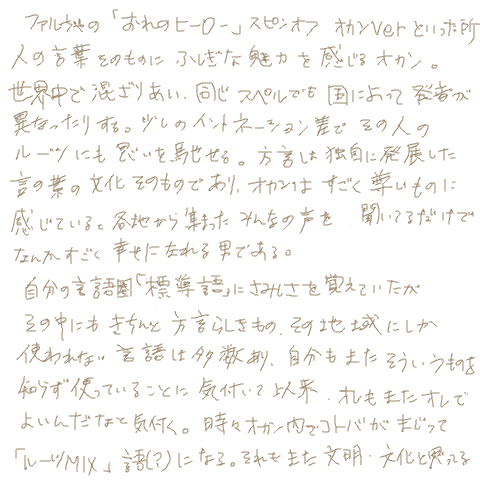 ファルやの「おれのヒーロー」スピンオフ オカンverといった所
人の言葉そのものにふしぎな魅力を感じるオカン。
世界中で混ざりあい、同じスペルでも国によって発音が
異なったりする。少しのイントネーション差でその人の
ルーツにも思いを馳せる。方言は独自に発展した
言の葉の文化そのものであり、オカンはすごく尊いものに
感じている。各地から集まったみんなの声を聞いてるだけで
なんかすごく幸せになれる男である。
自分の言語圏「標準語」にさみしさを覚えていたが
その中にもきちんと方言らしきもの、その地域にしか
使われない言語は多数あり、自分もまたそういうものを
知らず使っていることに気付いて以来、オレもまたオレで
よいんだなと気付く。時々オカン内でコトバがまじって
「ルーツMIX」語(?)になる。それもまた文明・文化と思ってる